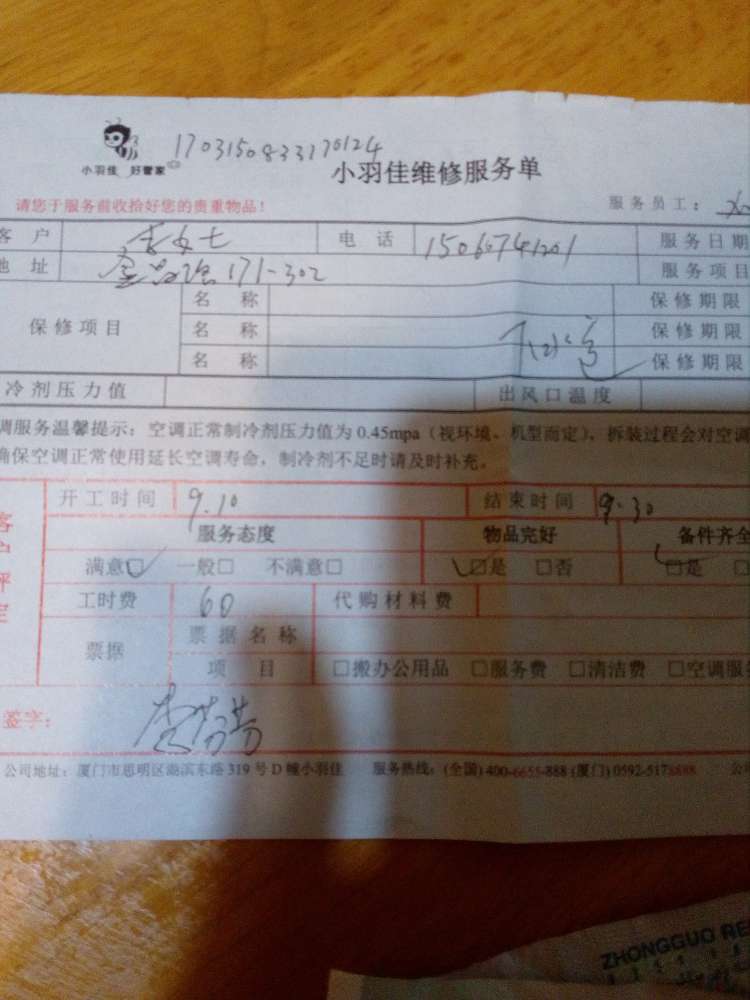 1703150833170124
小羽佳 好管家
小羽佳维修服务单
请您于服务前收拾好您的贵重物品！ 服务员工：
客 户 李女士 电 话 服务日期
地 址 171-302 服务项目
保修项目 名 称 保修期限
名 称 保修期限
名 称 保修期限
冷剂压力值 出风口温度
调服务温馨提示：空调正常制冷剂压力值为 0.45mpa（视环境、机型而定），拆装过程会对空调
确保空调正常使用延长空调寿命，制冷剂不足时请及时补充。
客户评定
开工时间 9.10 结束时间 9.30
服务态度 物品完好 备件齐全
满意□ 一般□ 不满意□ □是 □否 □是
工时费 60 代购材料费
票据 票据名称
项 目 □搬办公用品 □服务费 □清洁费 □空调服
签字：
公司地址：厦门市思明区湖滨东路 319 号 D 幢小羽佳 服务热线：(全国) 400-6655-888 (厦门) 0592-5178888 公
ZHONGGUO RE